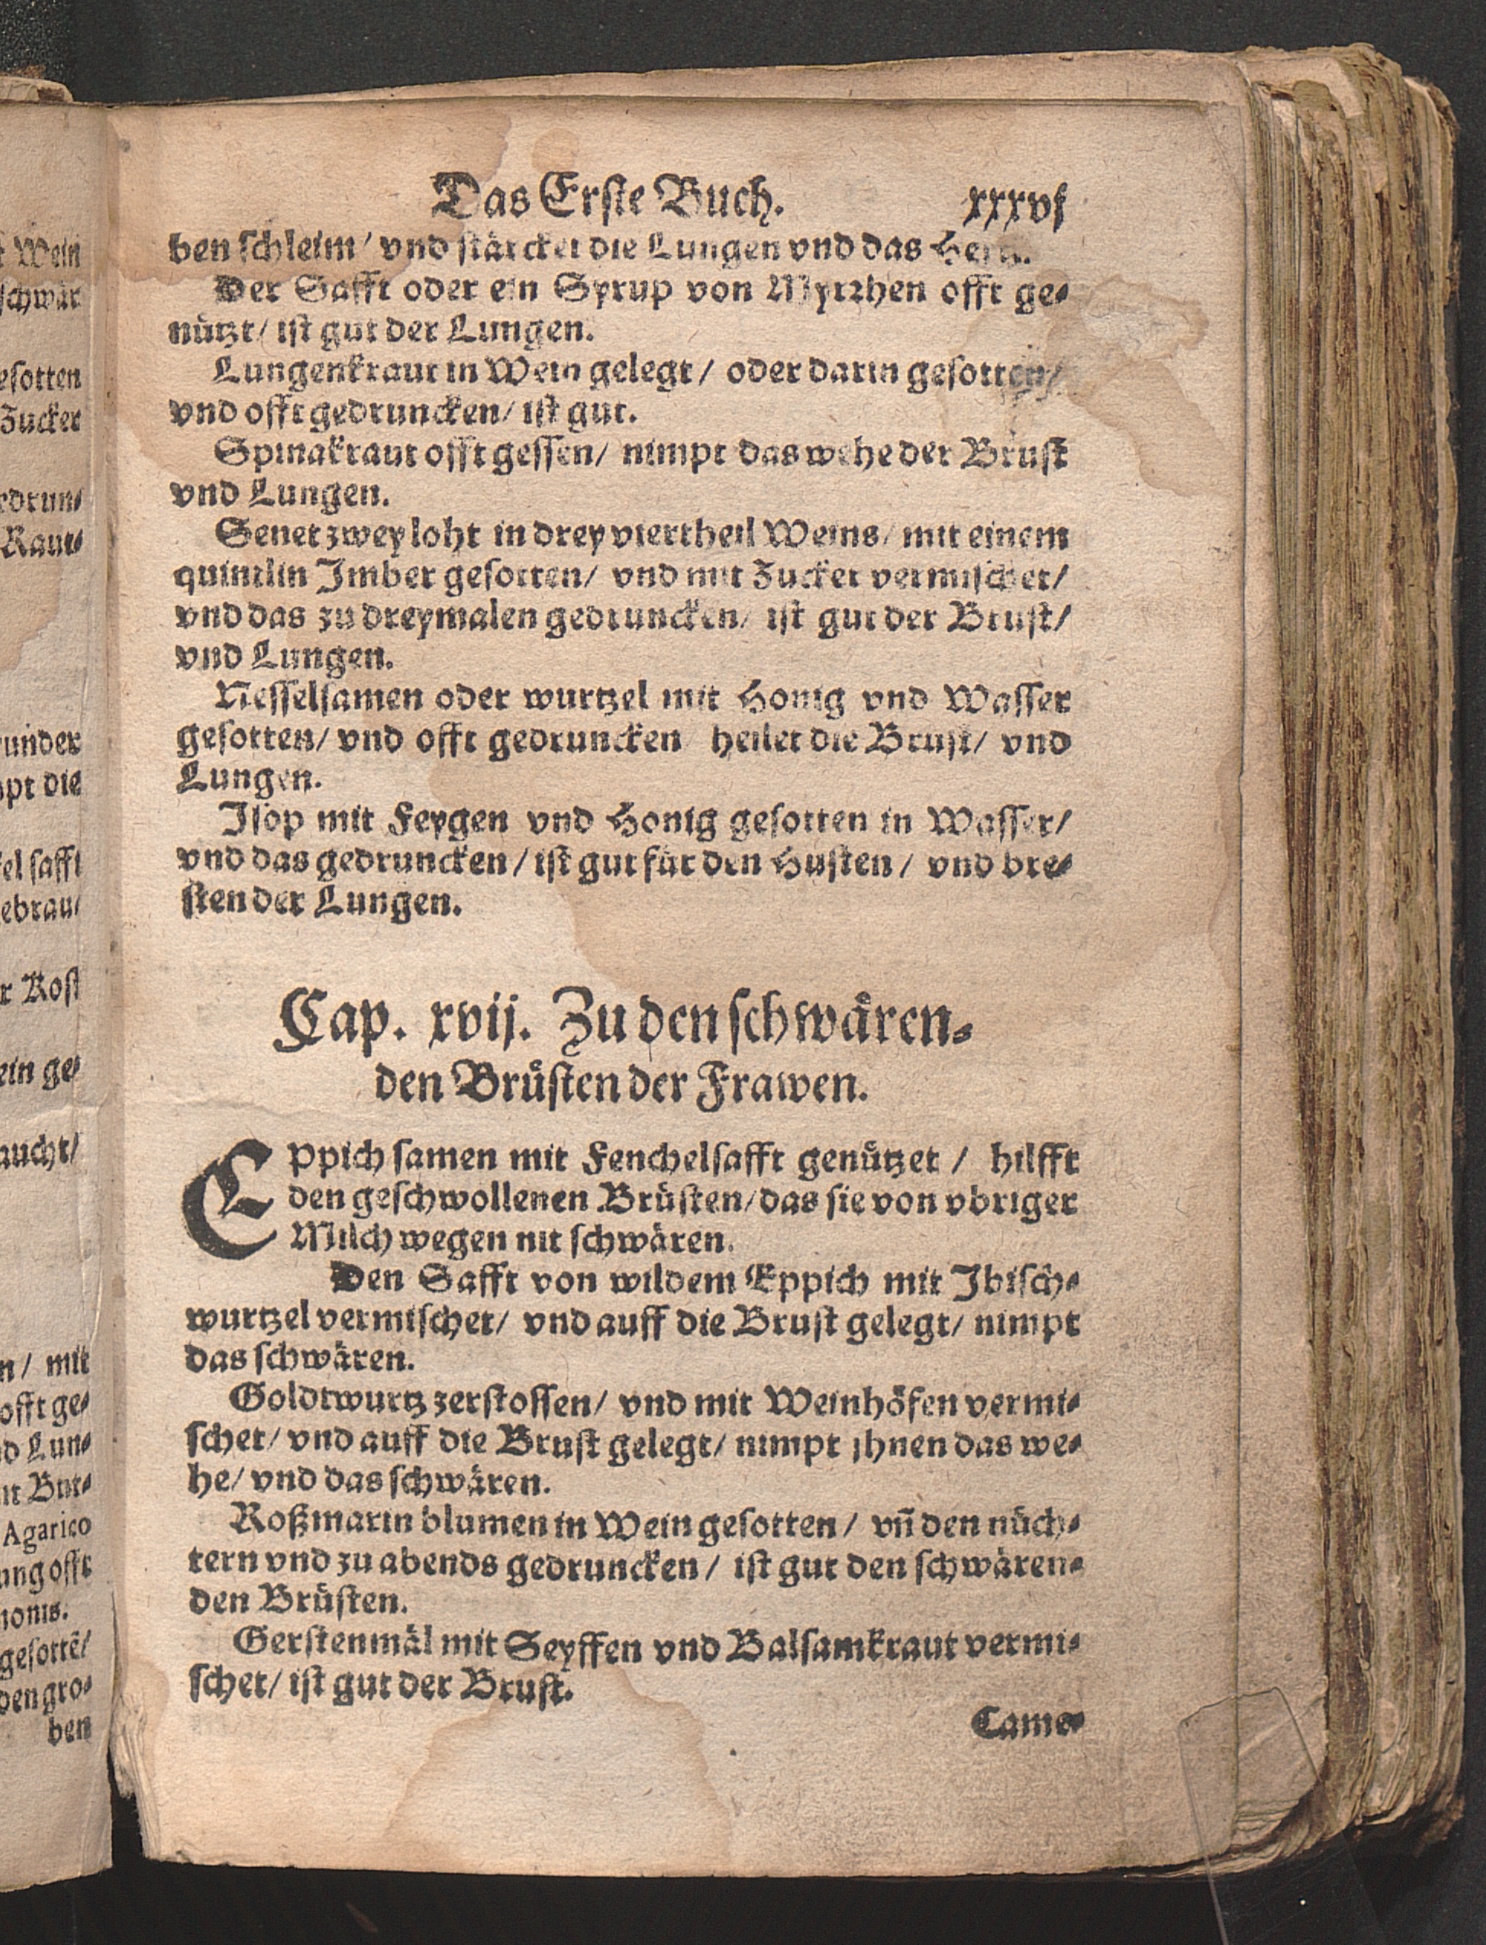 Das Erste Buch. xxxvj
ben schleim / vnd stärcket die Lungen vnd das
Der Safft oder ein Syrup von Myrrhen offt ge-
nützt / ist gut der Lungen.
Lungenkraut in Wein gelegt / oder darin gesotten /
vnd offt gedruncken / ist gut.
Spinakraut offt gessen / nimpt das wehe der Brust
vnd Lungen.
Senet zwey loht in drey viertheil Weins / mit einem
quintlin Imber gesotten / vnd mit Zucker vermischet /
vnd das zu dreymalen gedruncken / ist gut der Brust /
vnd Lungen.
Nesselsamen oder wurtzel mit Honig vnd Wasser
gesotten / vnd offt gedruncken heilet die Brust / vnd
Lungen.
Isop mit Feygen vnd Honig gesotten in Wasser /
vnd das gedruncken / ist gut für den Husten / vnd bre-
sten der Lungen.
Cap. xvij. Zu den schwären-
den Brüsten der Frawen.
EPpich samen mit Fenchelsafft genützet / hilfft
den geschwollenen Brüsten / das sie von vbriger
Milch wegen nit schwären.
Den Safft von wildem Eppich mit Ibisch-
wurtzel vermischet / vnd auff die Brust gelegt / nimpt
das schwären.
Goldtwurtz zerstossen / vnd mit Weinhöfen vermi-
schet / vnd auff die Brust gelegt / nimpt jhnen das we-
he / vnd das schwären.
Roßmarin blumen in Wein gesotten / vñ den nüch-
tern vnd zu abends gedruncken / ist gut den schwären-
den Brüsten.
Gerstenmäl mit Seyffen vnd Balsamkraut vermi-
schet / ist gut der Brust.
Came-
Wein
schwär
Zucker
Raut-
mpt die
safft
Kost
ein ge-
/ mit
offt ge-
Lun-
Agarico
offt
gesottẽ /
den gro-
ben